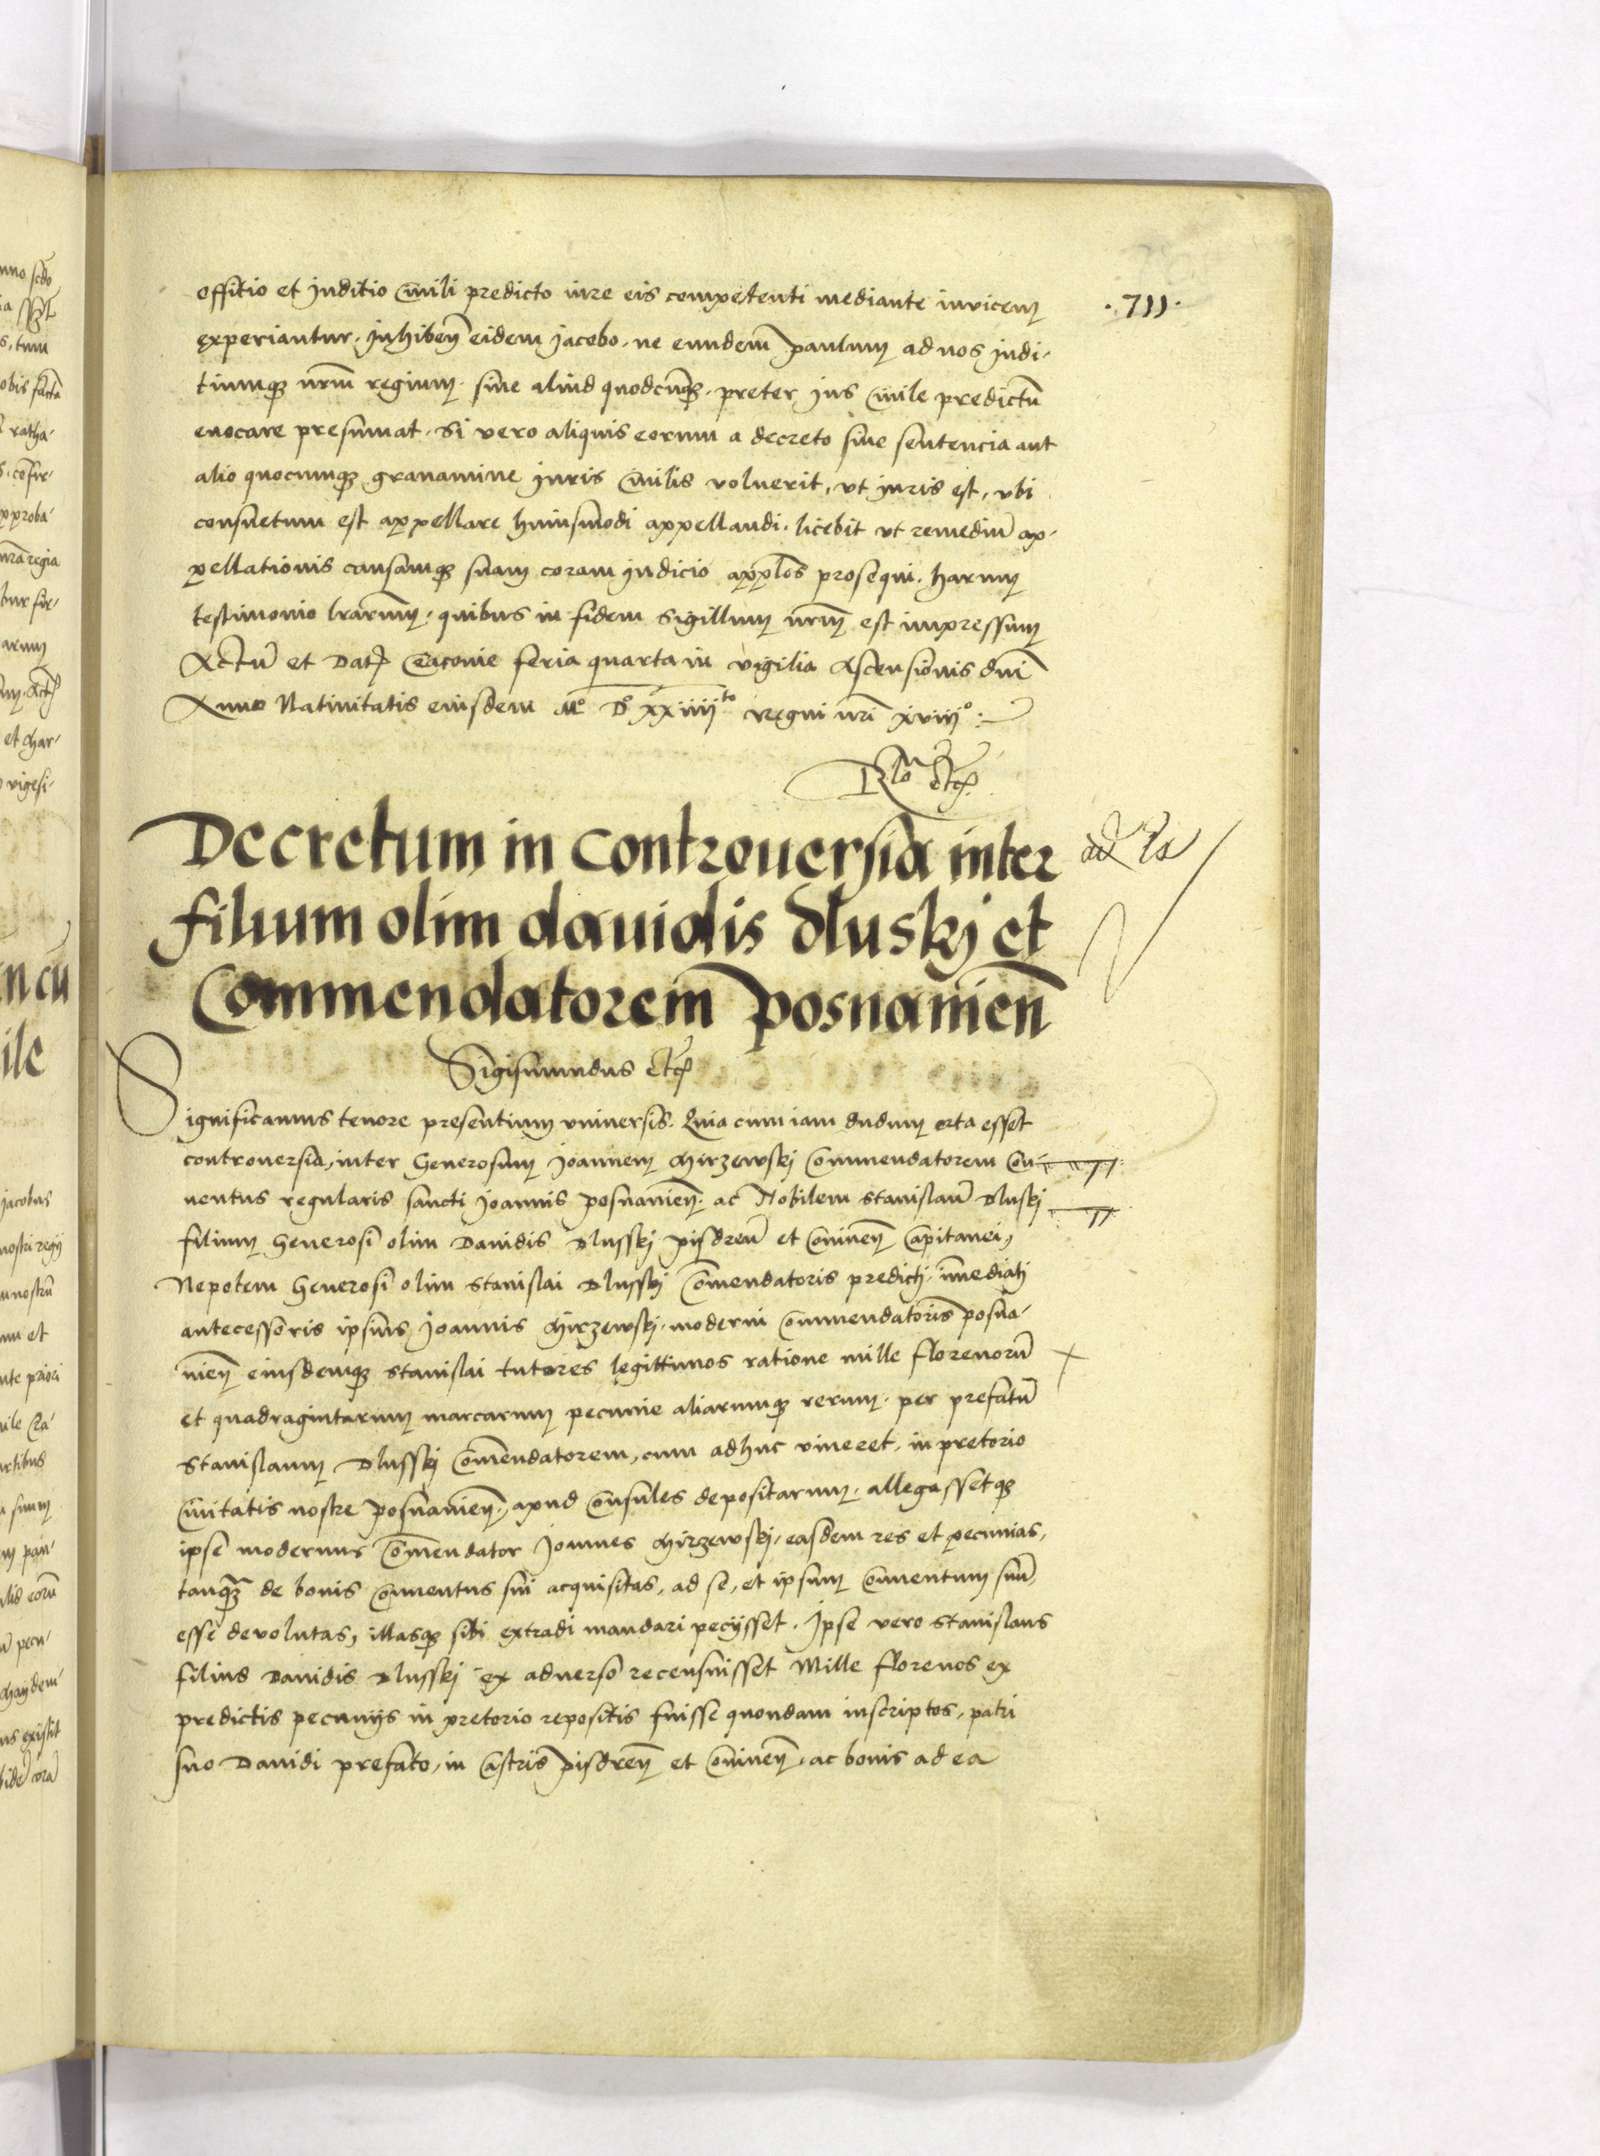 offitio et Juditio Civili predicto iure eis competenti mediante invicem
.711.
experiantur. Inhiben̄ eidem Jacobo. ne eundem Paulum ad nos Judi-
tiumqꝫ nr̄m regium. sive aliud quodcūqꝫ. preter Jus Civile predictū
evocare presumat. Si vero aliquis eorum a decreto sive sentencia aut
alio quocumqꝫ gravamine Juris Civilis voluerit, vt Juris est, vbi
consuetum est appellare huiusmodi appellandi. licebit vt remediū ap-
pellationis causamqꝫ suam coram Judicio prosequi. harum
testimonio lr̄arum. quibus in fidem Sigillum nr̄m est impressum
Actū et Datꝫ Cracovie feria quarta in vigilia Ascensionis dn̄i
Anno Nativitatis eiusdem Mº Dº xxiiiito regni nr̄i xviiiº
Rlo etcꝫ
Decretum in Controuersia inter
ad
filium olim dauidis dluskj et
Commendatorem posnanien̄
Sigismundus etcꝫ
Significamus tenore presentium vniversis. Quia cum iam dudum orta esset
controversia, inter Generosum Joannem Mirzewskj Commendatorem Con-
ventus regularis sancti Joannis posnanien̄. ac Nobilem Stanislaū Dluskj
filium Generosi olim Davidis Dlusskj pisdren̄ et Coninen̄ Capitanei,
Nepotem Generosi olim Stanislai Dlusskj Com̄endatoris predicti. im̄ediati
antecessoris ipsius Joannis Mirzewskj. moderni Commendatoris posna-
nien̄ eiusdemqꝫ Stanislai tutores legittimos ratione mille florenorū
et quadragintarum marcarum pecunie aliarumqꝫ rerum. per prefatū
Stanislaum Dlusskj Com̄endatorem, cum adhuc viveret. in pretorio
Civitatis nostre posnanien̄., apud Consules depositarum. allegassetqꝫ
ipse modernus Com̄endator Joannes Mirzewskj. easdem res et pecunias,
tanqꝫ de bonis Conventus sui acquisitas, ad se, et ipsum Conventum suū
esse devolutas, illasqꝫ sibi extradi mandari pecijsset. Ipse vero Stanislaus
filius Davidis Dlusskj ex adverso recensuisset Mille florenos ex
predictis pecunijs in pretorio repositis fuisse quondam inscriptos, patri
suo Davidi prefato, in Castris Pisdren̄ et Coninen̄. ac bonis ad ea